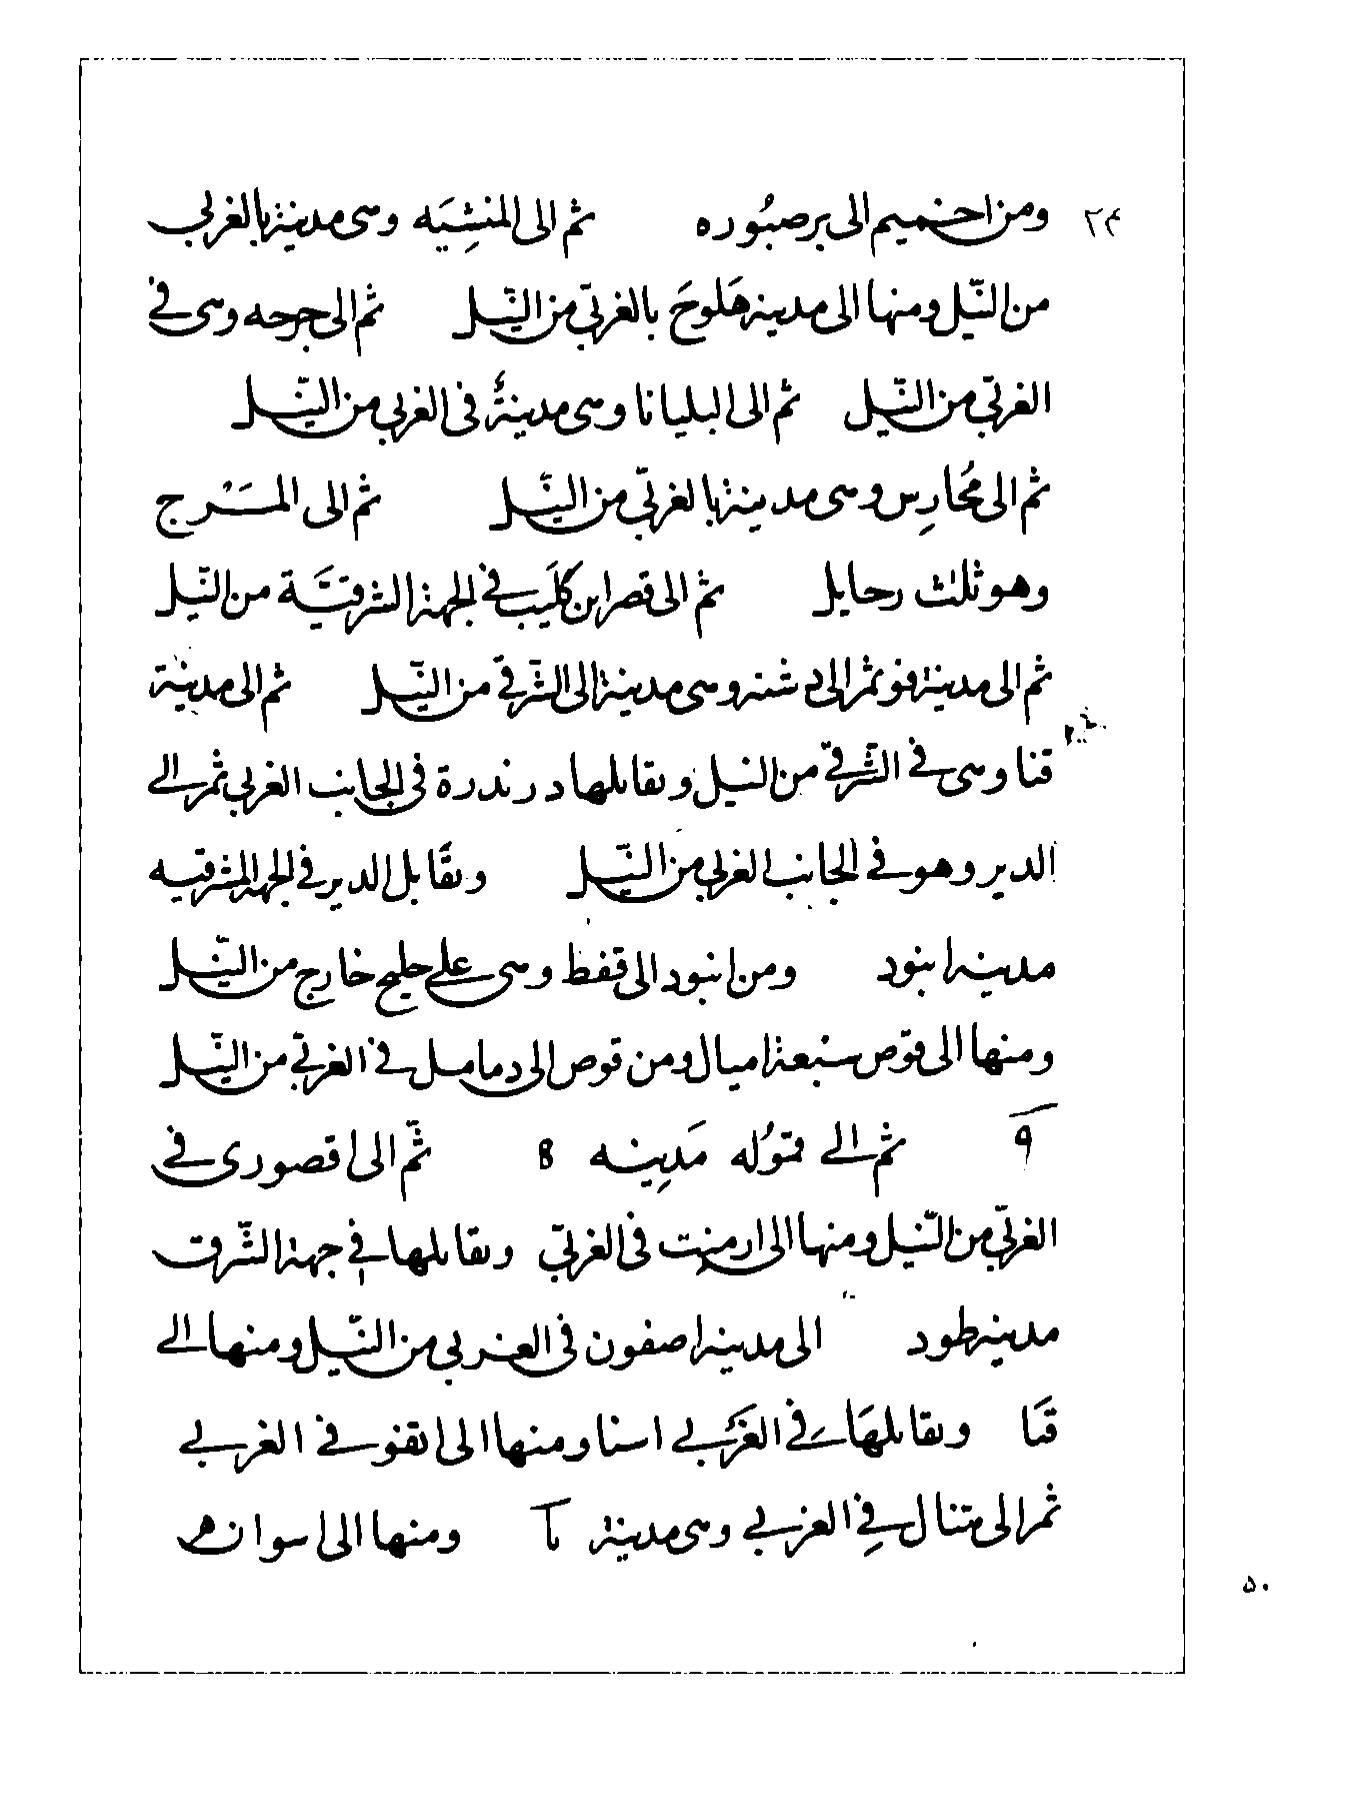 ٢٤ ومن اخميم الى برصبوره ثم الى المنشيه وهى مدينة بالغربي
من النيل ومنها الى مدينه هلوح بالغربي من النيل ثم الى جرجه وهى في
الغربي من النيل ثم الى البليانا وهى مدينة فى الغربي من النيل
ثم الى مُحارِس وهى مدينة بالغربي من النيل ثم الى المسرج
وهو ثلث رحايل ثم الى قصر ابن كليب في الجهة الشرقية من النيل
ثم الى مدينة فو ثم الى شنه وهى مدينة الى الشرقي من النيل ثم الى مدينة
قنا وهى في الشرقي من النيل ويقابلها دندرة فى الجانب الغربي ثم الى
الدير وهو في الجانب الغربي من النيل ويقابل الدير في الجهة الشرقيه
مدينه ابنود ومن ابنود الى قفط وهى على خليج خارج من النيل
ومنها الى قوص سبعة اميال ومن قوص الى دمامل في الغربي من النيل
٩ ثم الى قموله مَدِينه 8 ثم الى اقصورى في
الغربي من النيل ومنها الى ارمنت فى الغربي ويقابلها في جهة الشرق
مدينه طود الى مدينه اصفون فى الغربي من النيل ومنها الى
قنا ويقابلها في الغربي اسنا ومنها الى اتفو في الغربي
ثم الى متنال في الغربي وهى مدينة ومنها الى اسوان
٥٠